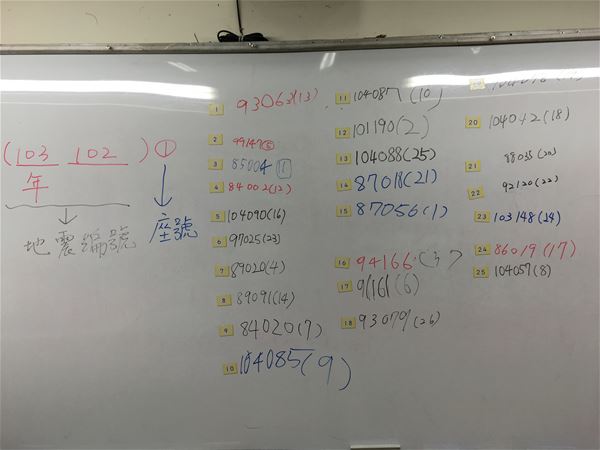 (103 102) ①
年
地震編號
座號
1 93063(13)
2 99147
3 85004
4 84002(12)
5 104090(16)
6 97025(23)
7 89020(4)
8 89091(14)
9 84020(7)
10 104085(9)
11 104087(10)
12 101190(2)
13 104088(25)
14 87018(21)
15 87056(1)
16 94166
17 9(6)
18 93079(26)
20 (18)
21 88035(20)
22 92120(22)
23 103148
24 86019(17)
25 104057(8)